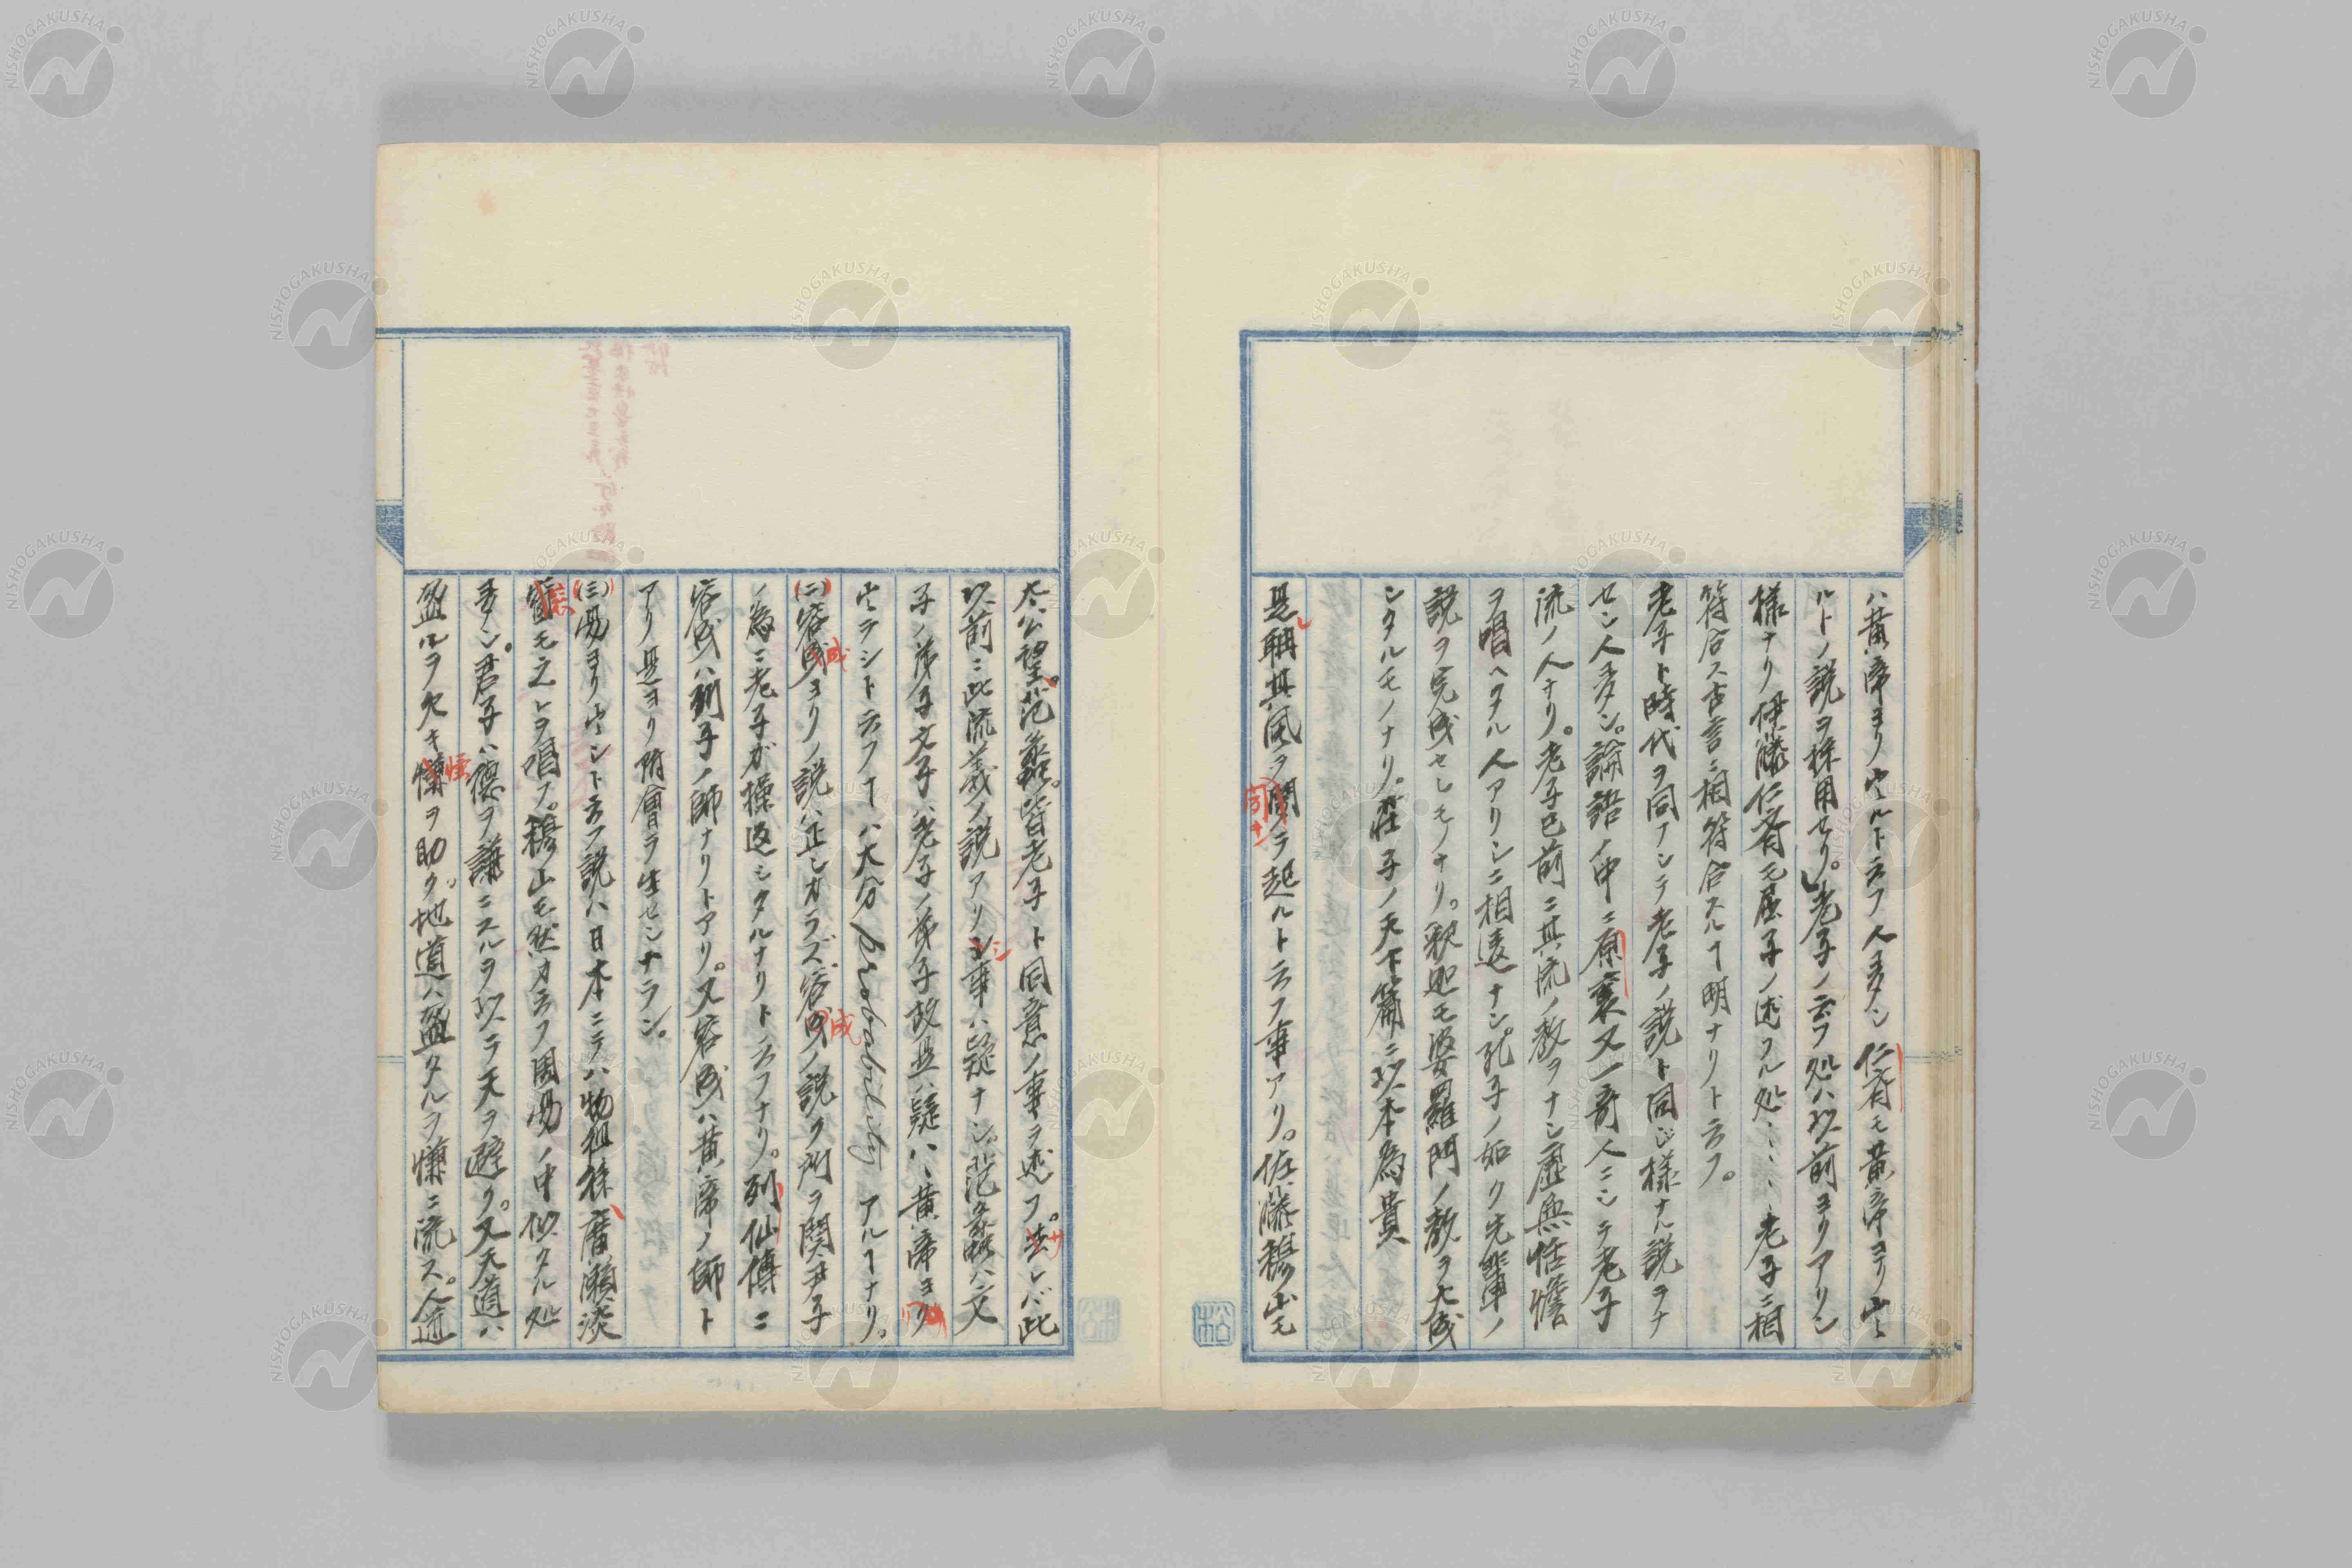 ハ黄帝ヨリ出ルト云フ人多シ仁斎モ黄帝ヨリ出
ルトノ説ヲ採用セリ。老子ノ云フ処ハ以前ヨリアリシ
様ナリ伊藤仁斎モ屈子ノ述フル処……老子ニ相
符合ス古言ニ相符合スルヿ明ナリト云フ。
老子ト時代ヲ同フシテ老子ノ説ト同じ様ナル説ヲナ
セシ人多シ。論語ノ中ニ原壤又一奇人ニシテ老子
流ノ人ナリ。老子已前ニ其流ノ教ヲナシ虚無恬憺
ヲ唱ヘタル人アリシニ相違ナシ。孔子ノ如ク先輩ノ
説ヲ完成セシモノナリ。釈迦モ婆羅門ノ教ヲ大成
シタルモノナリ。荘子ノ天下篇ニ以本為貴
是聃其風ヲ聞テ起ルト云フ事アリ。佐藤穆山モ
太公望。范蠡。皆老子ト同意ノ事ヲ述フ。サレバ此
以前ニ此流義ノ説アリシ事ハ疑ナシ。范蠡ハ文
子ノ弟子文子ハ老子ノ弟子故是ハ疑ハシ黄帝ヨリ
出テシト云フヿハ大分 probability アルヿナリ。
(二)容成ヨリノ説ハ正シカラズ容成ノ説ク所ヲ関尹子
ノ為ニ老子ガ操返シタルナリト云フナリ。列仙傳ニ
容成ハ列子ノ師ナリトアリ。又容成ハ黄帝ノ師ト
アリ是ヨリ附會ヲ生セシナラン。
(三)易ヨリ出シト云フ説ハ日本ニテハ物徂徠、廣瀬淡
窓モ之レヲ唱フ。穆山モ然カ云フ周易ノ中似タル処
多シ。君子ハ德ヲ謙ニスルヲ以テ天ヲ避ク。又天道ハ
盈ルヲ欠キ慊ヲ助ク。地道ハ盈タルヲ慊ニ流ス。人道